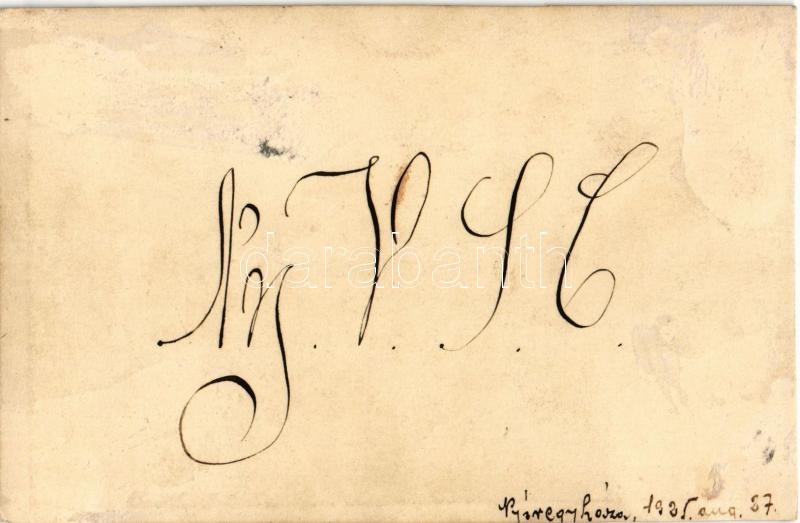 Ny. V. S. C.
darabanth
Nyíregyháza, 1935. aug. 27.